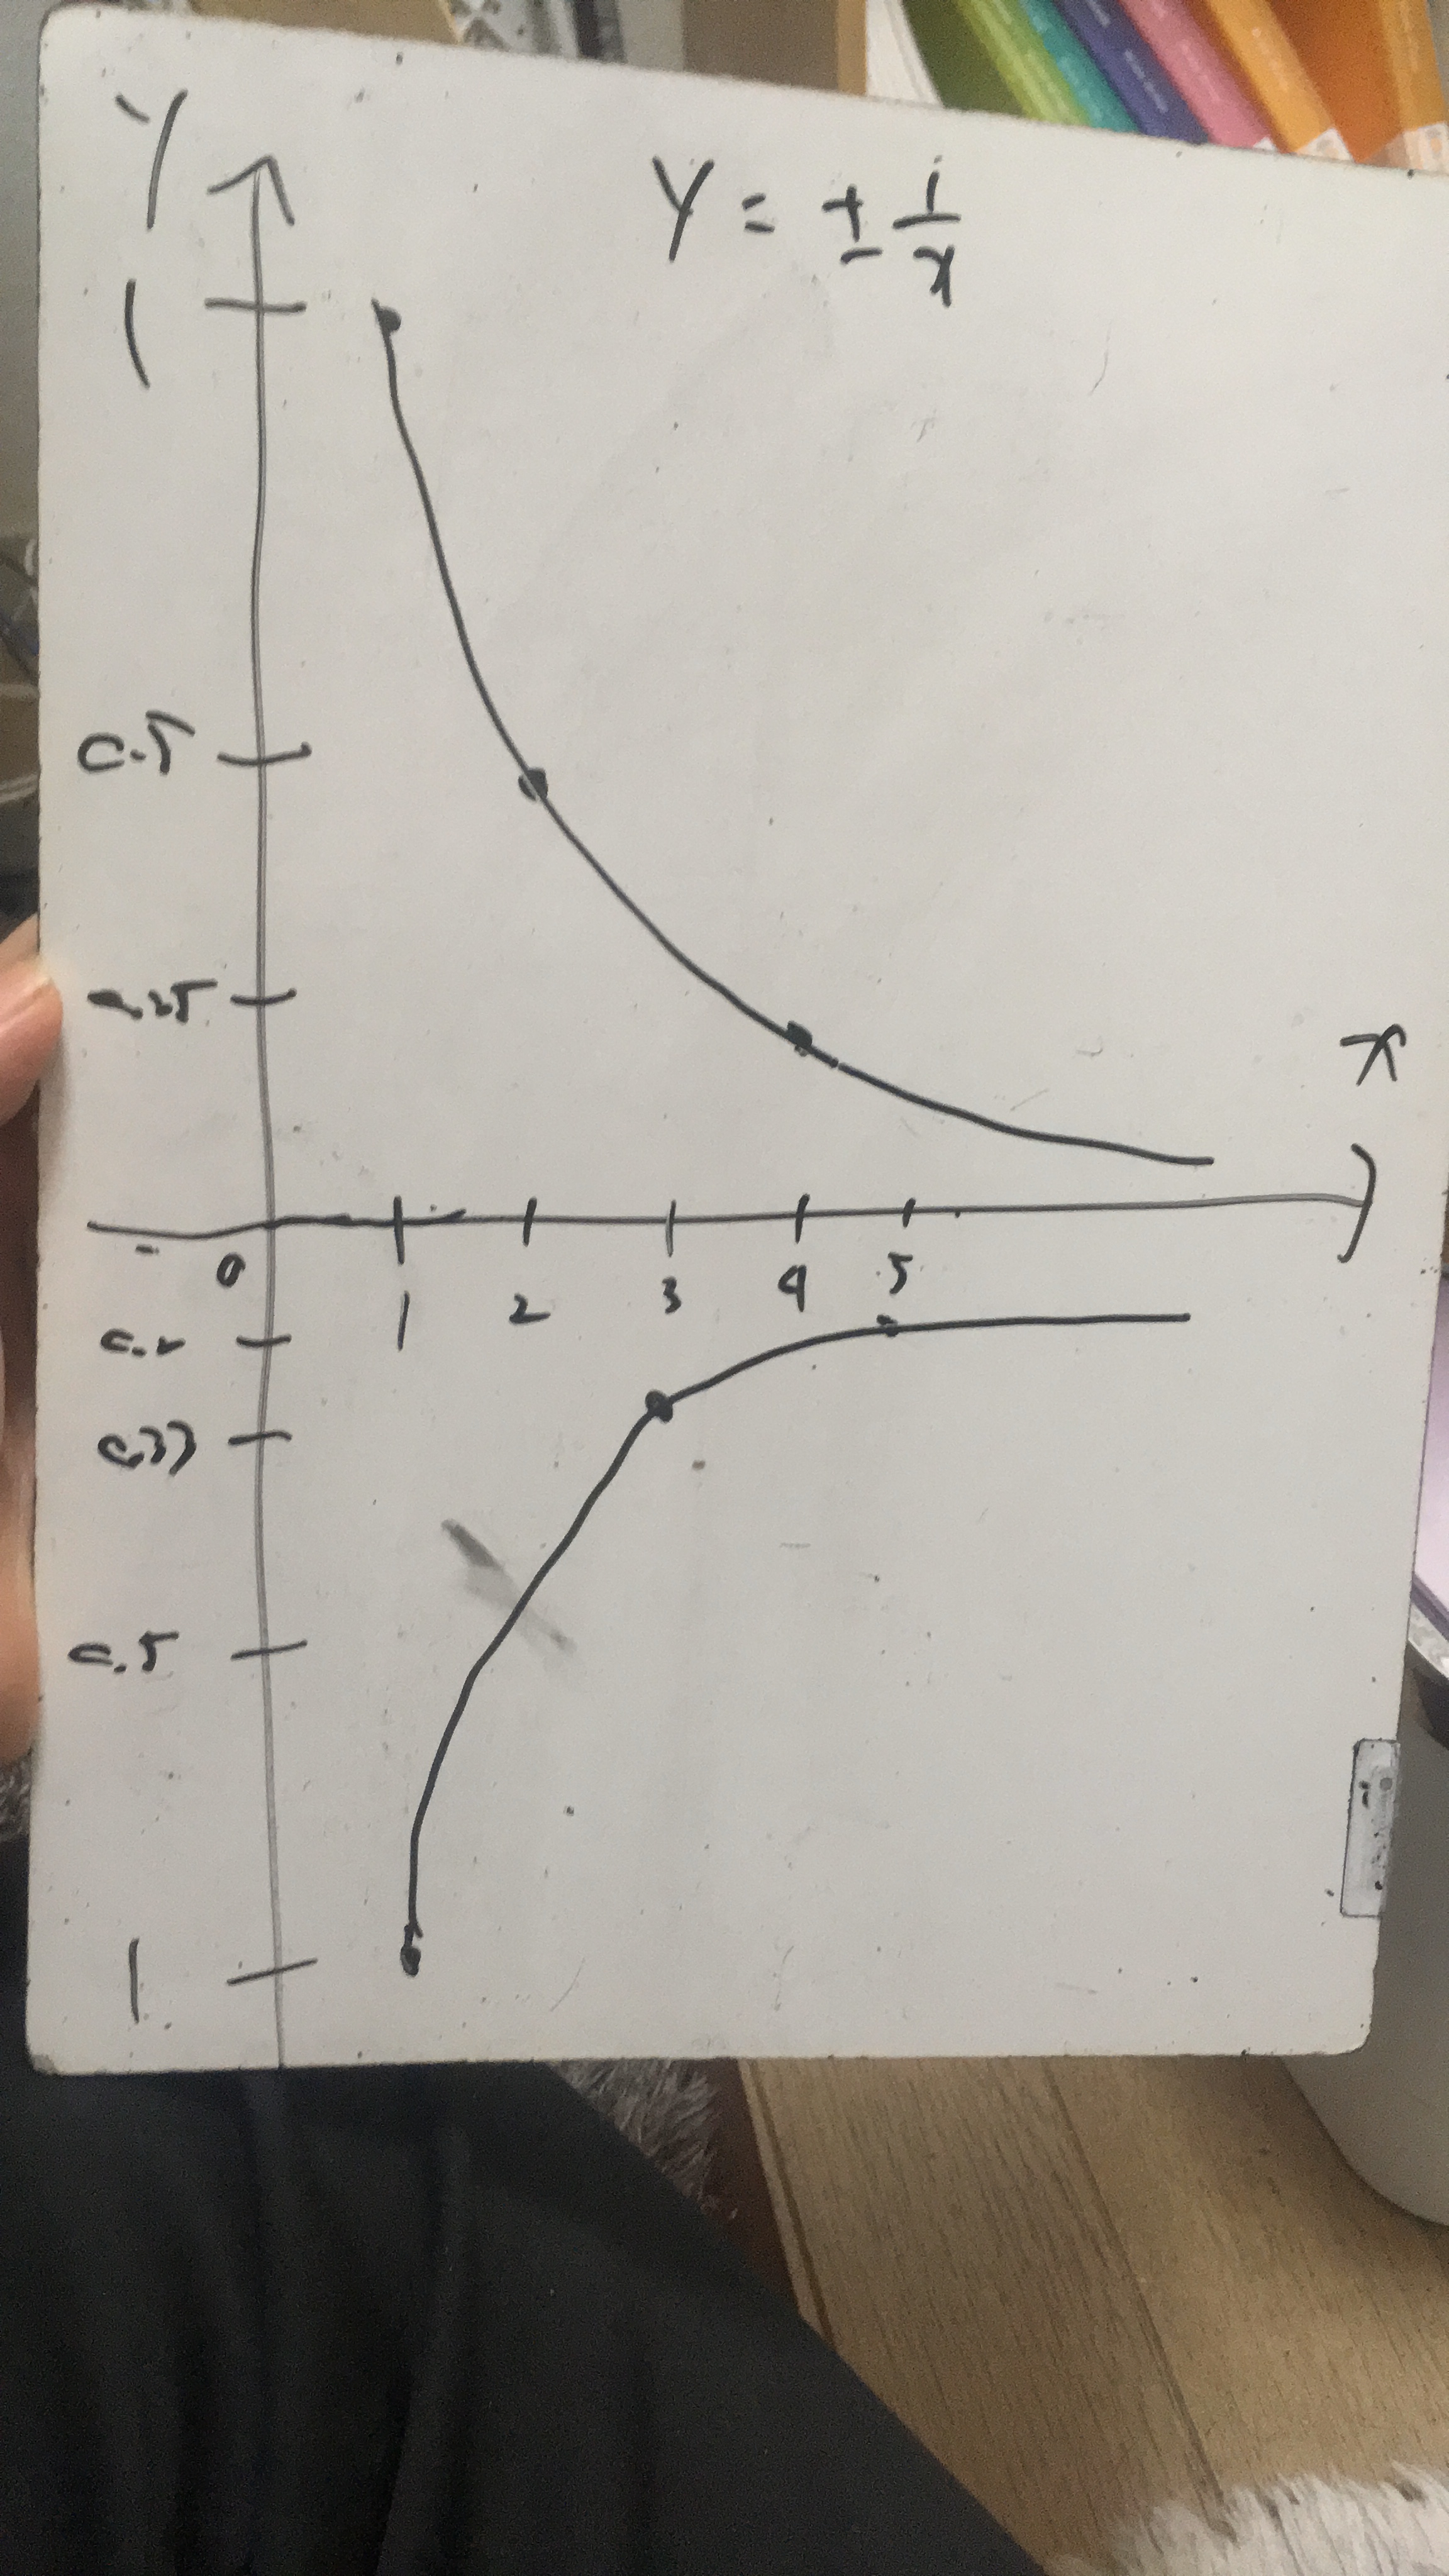 Y
Y = ± 1/x
1
0.5
0.25
x
0 1 2 3 4 5
0.2
0.33
0.5
1